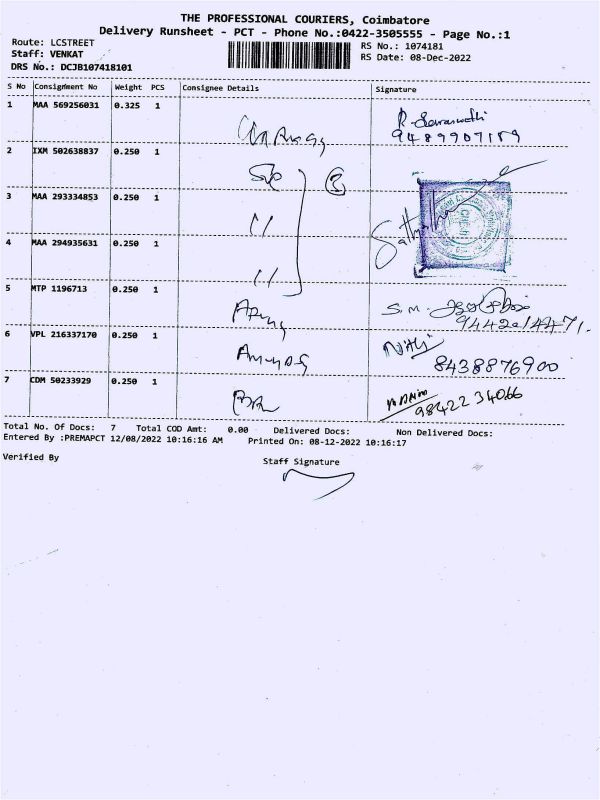 THE PROFESSIONAL COURIERS, Coimbatore
Delivery Runsheet - PCT - Phone No.:0422-3505555 - Page No.:1
Route: LCSTREET
Staff: VENKAT
DRS No.: DCJB107418101
RS No.: 1074181
RS Date: 08-Dec-2022
S No Consignment No Weight PCS Consignee Details Signature
1 MAA 569256031 0.325 1
R. Saraswathi
9489907159
2 IXM 502638837 0.250 1
3 MAA 293334853 0.250 1 "
4 MAA 294935631 0.250 1 "
5 MTP 1196713 0.250 1
S.M.
9442014471.
6 VPL 216337170 0.250 1
8438876900
7 CDM 50233929 0.250 1
98422 34066
Total No. Of Docs: 7 Total COD Amt: 0.00 Delivered Docs: Non Delivered Docs:
Entered By :PREMAPCT 12/08/2022 10:16:16 AM Printed On: 08-12-2022 10:16:17
Verified By
Staff Signature